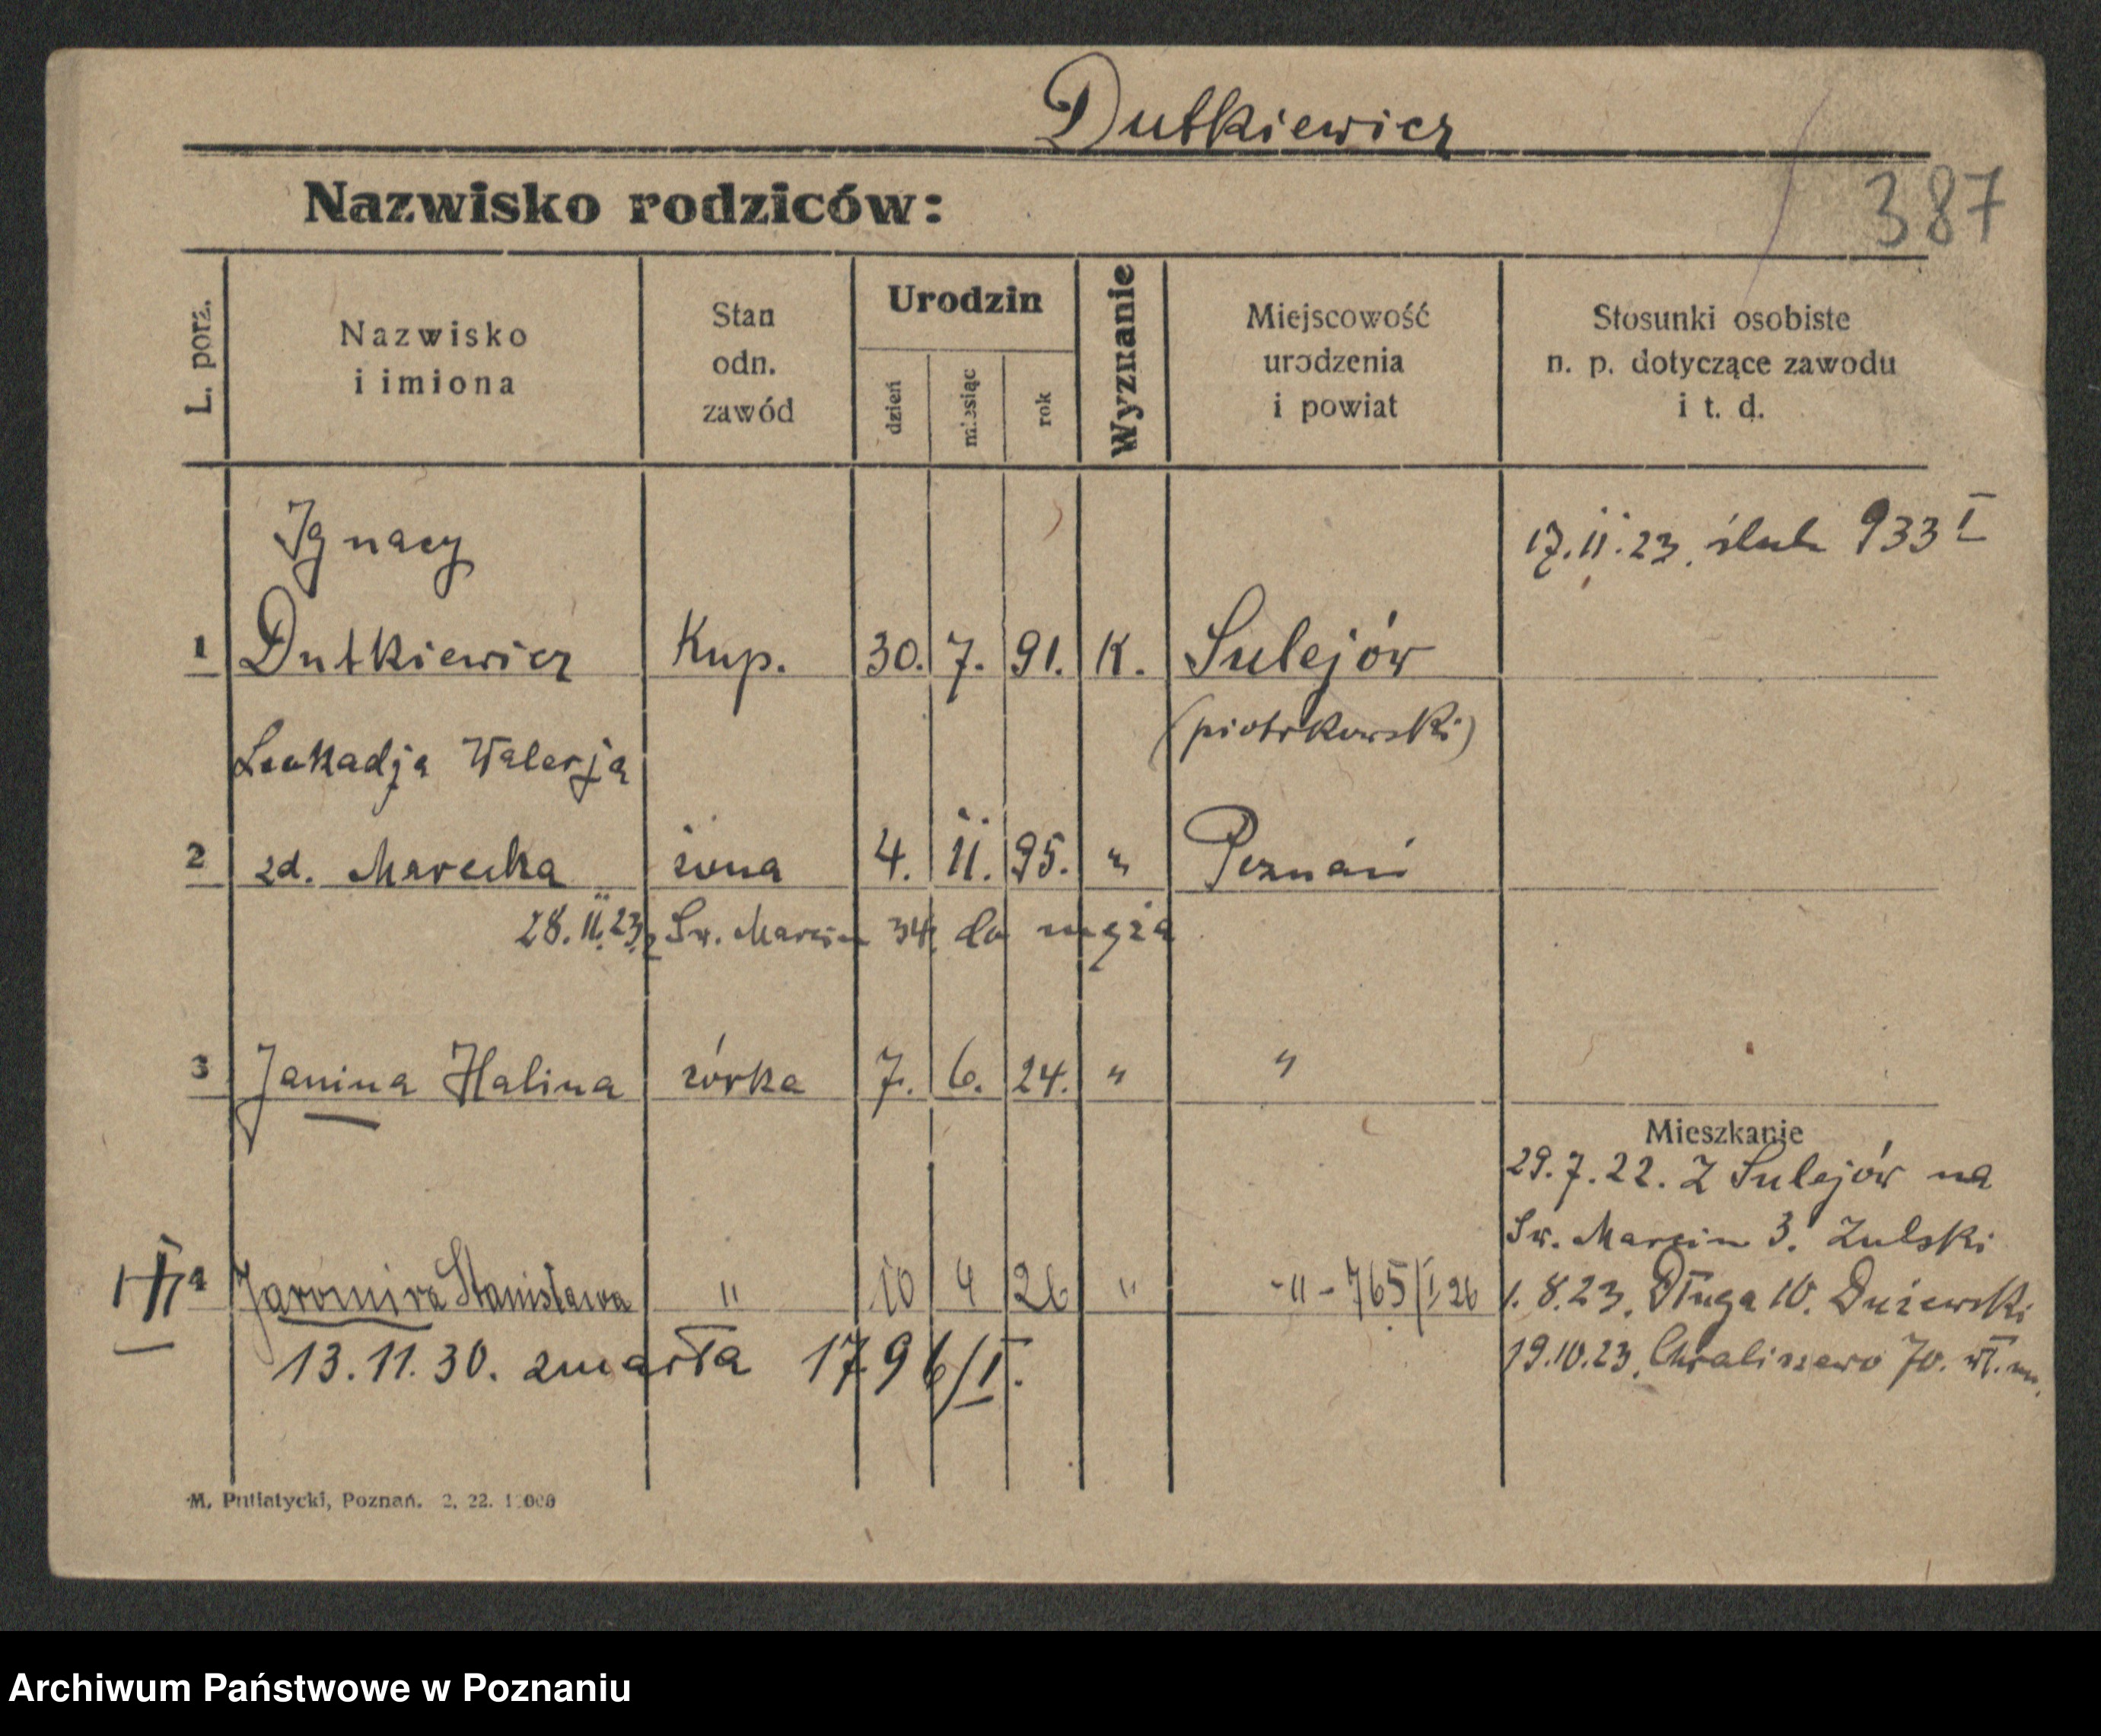 Dutkiewicz
Nazwisko rodziców:
387
L. porz.
Nazwisko
i imiona
Stan
odn.
zawód
Urodzin
dzień
miesiąc
rok
Wyznanie
Miejscowość
urodzenia
i powiat
Stosunki osobiste
n. p. dotyczące zawodu
i t. d.
Ignacy
17.11.23. ślub 933 I
1 Dutkiewicz Kup. 30. 7. 91. K. Sulejów
(piotrkowski)
Leokadja Walerja
2 zd. Marecka żona 4. 11. 95. " Poznań
28.11.23 z Św. Marcin 34. do męża
3 Janina Halina córka 7. 6. 24. " "
Mieszkanie
29.7.22. Z Sulejów na
Św. Marcin 3. Zulski
4 Jaromira Stanisława " 10 4 26 " -"- 765/I 26
1.8.23. Długa 10. Dużewski
13.11.30. zmarła 1796/I.
19.10.23. Chwaliszewo 70. wł. m.
M. Putiatycki, Poznań. 2. 22.
Archiwum Państwowe w Poznaniu